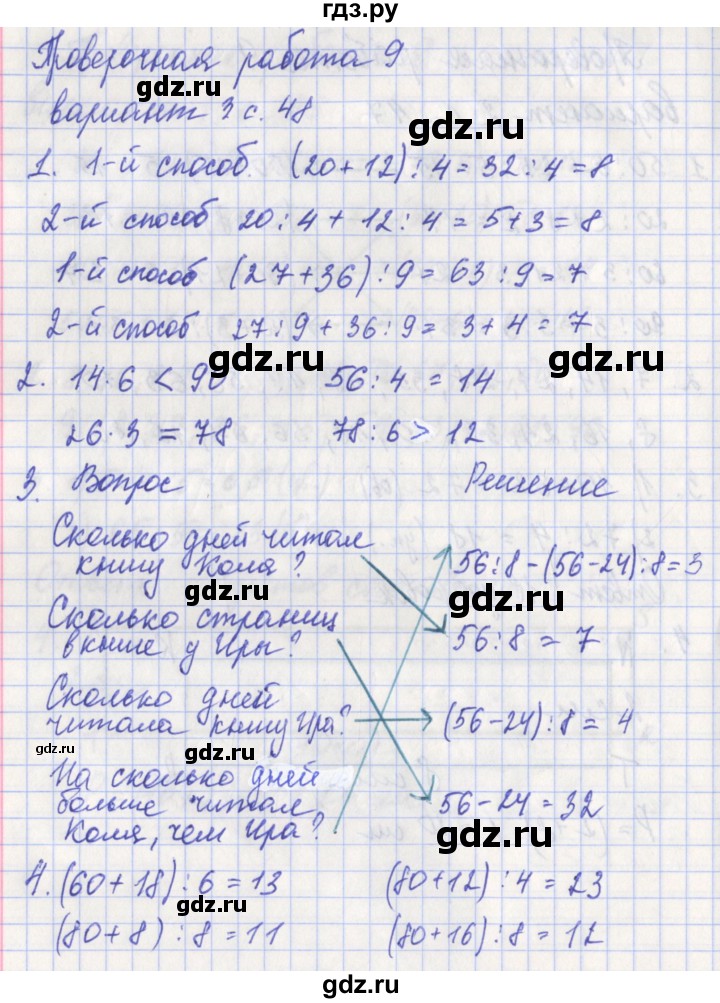 гдз.ру
Проверочная работа 9
gdz.ru
вариант 3 с. 48
gdz.ru
1. 1-й способ. (20+12):4=32:4=8
2-й способ 20:4+12:4=5+3=8
gdz.ru
1-й способ (27+36):9=63:9=7
2-й способ 27:9+36:9=3+4=7
gdz.ru
2. 14·6 < 90 56:4=14
26·3=78 78:6>12
gdz.ru gdz.ru
3. Вопрос Решение
Сколько дней читал
книгу Коля? 56:8-(56-24):8=3
gdz.ru gdz.ru
Сколько страниц
в книге у Иры? 56:8=7
Сколько дней
читала книгу Ира? (56-24):8=4
gdz.ru gdz.ru
На сколько дней
больше читал 56-24=32
Коля, чем Ира? gdz.ru
4. (60+18):6=13 (80+12):4=23
gdz.ru
(80+8):8=11 (80+16):8=12
gdz.ru
gdz.ru